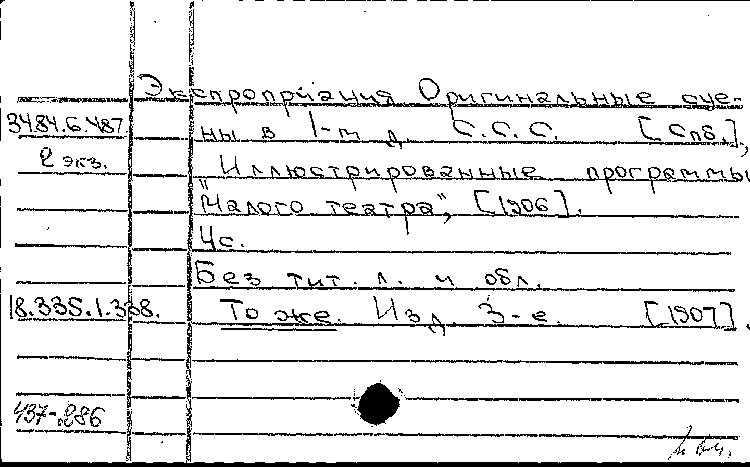 Экспроприация Оригинальные сце-
34.84.6.487. ны в 1-м д. С.С.С. [Спб.],
2 экз. Иллюстрированные программы
"Малого театра", [1906].
4с.
Без тит. л. и обл.
18.335.1.338. То же. Изд. 3-е. [1907].
437-286